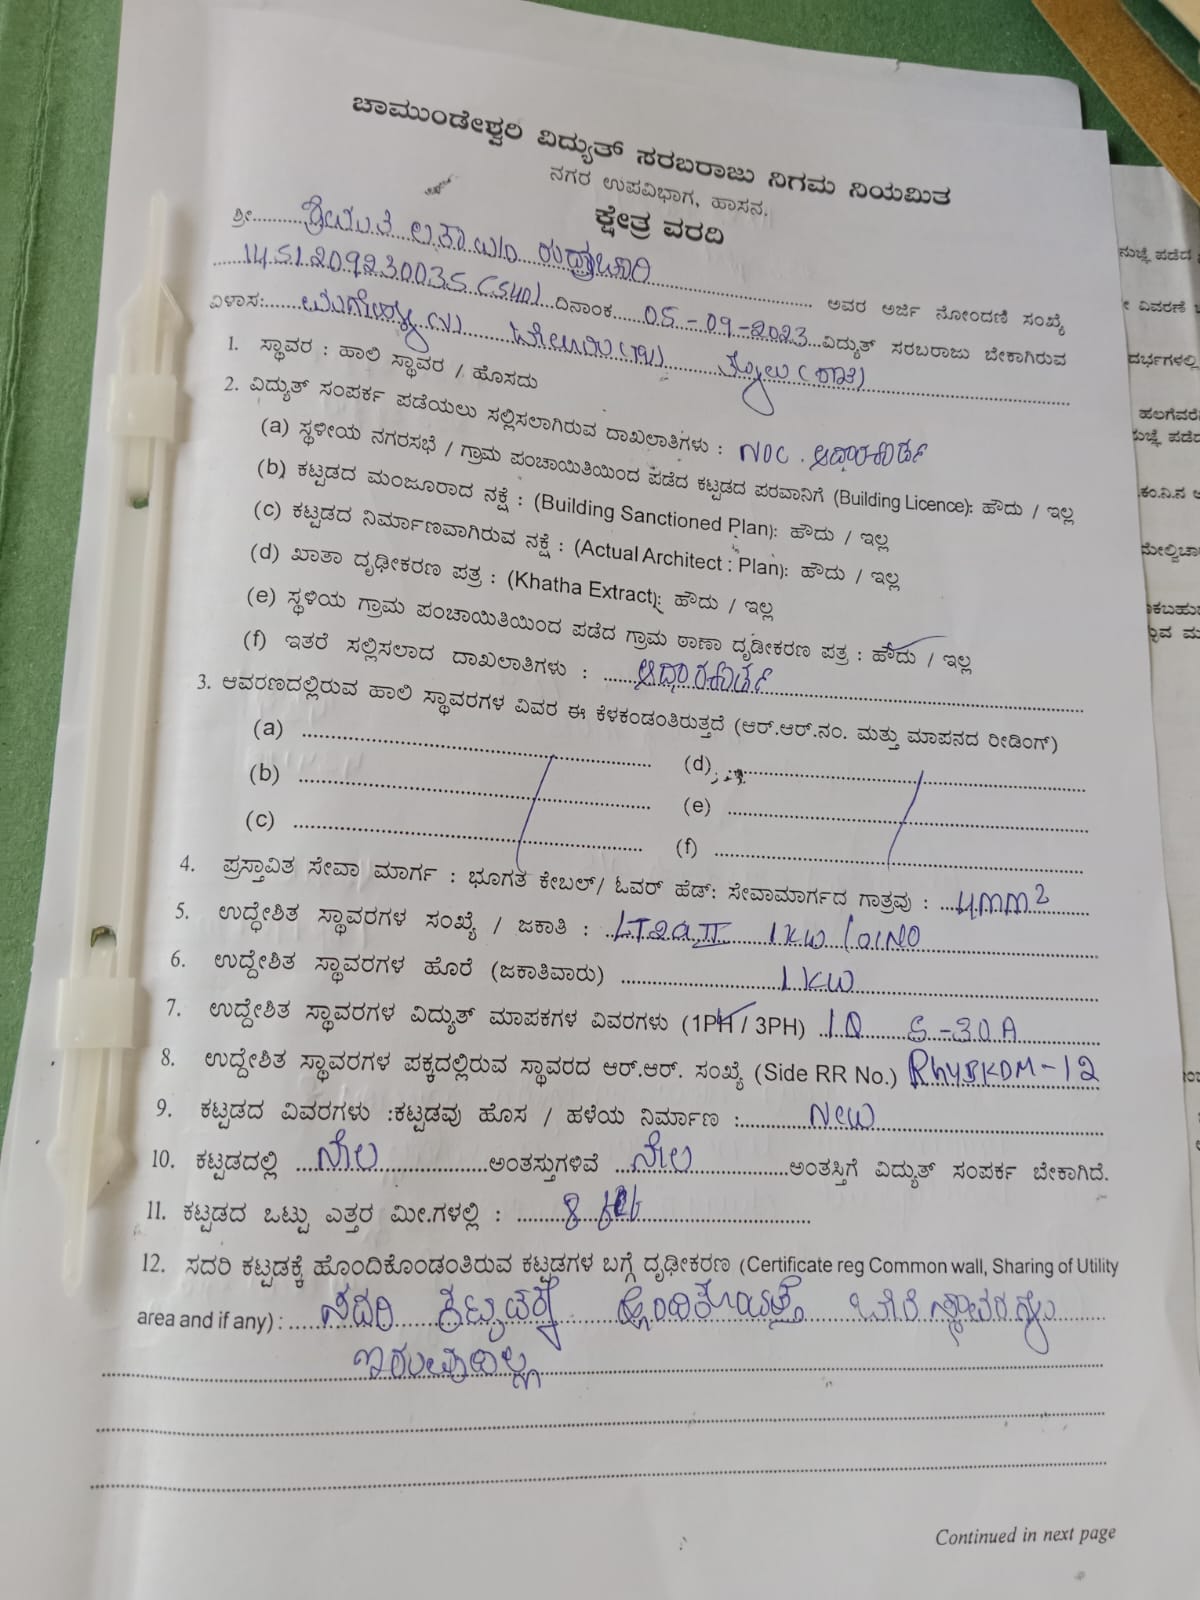 ಚಾಮುಂಡೇಶ್ವರಿ ವಿದ್ಯುತ್ ಸರಬರಾಜು ನಿಗಮ ನಿಯಮಿತ
ನಗರ ಉಪವಿಭಾಗ, ಹಾಸನ.
ಕ್ಷೇತ್ರ ವರದಿ
ಶ್ರೀ.......... ಶ್ರೀಮತಿ
........ ದಿನಾಂಕ..... 05-09-2023 ಅವರ ಅರ್ಜಿ ನೋಂದಣಿ ಸಂಖ್ಯೆ
ವಿಳಾಸ:....... ವಿದ್ಯುತ್ ಸರಬರಾಜು ಬೇಕಾಗಿರುವ
1. ಸ್ಥಾವರ : ಹಾಲಿ ಸ್ಥಾವರ / ಹೊಸದು
2. ವಿದ್ಯುತ್ ಸಂಪರ್ಕ ಪಡೆಯಲು ಸಲ್ಲಿಸಲಾಗಿರುವ ದಾಖಲಾತಿಗಳು : NOC . ಆಧಾರಕಾರ್ಡ್
(a) ಸ್ಥಳೀಯ ನಗರಸಭೆ / ಗ್ರಾಮ ಪಂಚಾಯಿತಿಯಿಂದ ಪಡೆದ ಕಟ್ಟಡದ ಪರವಾನಿಗೆ (Building Licence): ಹೌದು / ಇಲ್ಲ
(b) ಕಟ್ಟಡದ ಮಂಜೂರಾದ ನಕ್ಷೆ : (Building Sanctioned Plan): ಹೌದು / ಇಲ್ಲ
(c) ಕಟ್ಟಡದ ನಿರ್ಮಾಣವಾಗಿರುವ ನಕ್ಷೆ : (Actual Architect : Plan): ಹೌದು / ಇಲ್ಲ
(d) ಖಾತಾ ದೃಢೀಕರಣ ಪತ್ರ : (Khatha Extract): ಹೌದು / ಇಲ್ಲ
(e) ಸ್ಥಳಿಯ ಗ್ರಾಮ ಪಂಚಾಯಿತಿಯಿಂದ ಪಡೆದ ಗ್ರಾಮ ಠಾಣಾ ದೃಡೀಕರಣ ಪತ್ರ : ಹೌದು / ಇಲ್ಲ
(f) ಇತರೆ ಸಲ್ಲಿಸಲಾದ ದಾಖಲಾತಿಗಳು : ...... ಆಧಾರಕಾರ್ಡ್
3. ಆವರಣದಲ್ಲಿರುವ ಹಾಲಿ ಸ್ಥಾವರಗಳ ವಿವರ ಈ ಕೆಳಕಂಡಂತಿರುತ್ತದೆ (ಆರ್.ಆರ್.ನಂ. ಮತ್ತು ಮಾಪನದ ರೀಡಿಂಗ್)
(a) ........ (d) ........
(b) ........ (e) ........
(c) ........ (f) ........
4. ಪ್ರಸ್ತಾವಿತ ಸೇವಾ ಮಾರ್ಗ : ಭೂಗತ ಕೇಬಲ್/ ಓವರ್ ಹೆಡ್: ಸೇವಾಮಾರ್ಗದ ಗಾತ್ರವು : ... 4mm2
5. ಉದ್ಧೇಶಿತ ಸ್ಥಾವರಗಳ ಸಂಖ್ಯೆ / ಜಕಾತಿ : LT2aII 1KW /01NO
6. ಉದ್ದೇಶಿತ ಸ್ಥಾವರಗಳ ಹೊರೆ (ಜಕಾತಿವಾರು) ........ 1KW
7. ಉದ್ದೇಶಿತ ಸ್ಥಾವರಗಳ ವಿದ್ಯುತ್ ಮಾಪಕಗಳ ವಿವರಗಳು (1PH / 3PH) 5-30A
8. ಉದ್ದೇಶಿತ ಸ್ಥಾವರಗಳ ಪಕ್ಕದಲ್ಲಿರುವ ಸ್ಥಾವರದ ಆರ್.ಆರ್. ಸಂಖ್ಯೆ (Side RR No.)
9. ಕಟ್ಟಡದ ವಿವರಗಳು :ಕಟ್ಟಡವು ಹೊಸ / ಹಳೆಯ ನಿರ್ಮಾಣ :........ New
10. ಕಟ್ಟಡದಲ್ಲಿ ... ನೆಲ ........ಅಂತಸ್ತುಗಳಿವೆ ... ನೆಲ ........ಅಂತಸ್ತಿಗೆ ವಿದ್ಯುತ್ ಸಂಪರ್ಕ ಬೇಕಾಗಿದೆ.
11. ಕಟ್ಟಡದ ಒಟ್ಟು ಎತ್ತರ ಮೀ.ಗಳಲ್ಲಿ : ........ 8
12. ಸದರಿ ಕಟ್ಟಡಕ್ಕೆ ಹೊಂದಿಕೊಂಡಂತಿರುವ ಕಟ್ಟಡಗಳ ಬಗ್ಗೆ ದೃಢೀಕರಣ (Certificate reg Common wall, Sharing of Utility
area and if any) : .... ಸದರಿ ಕಟ್ಟಡಕ್ಕೆ ಹೊಂದಿಕೊಂಡಂತೆ ಬೇರೆ ಸ್ಥಾವರಗಳು
ಇರುವುದಿಲ್ಲ
Continued in next page